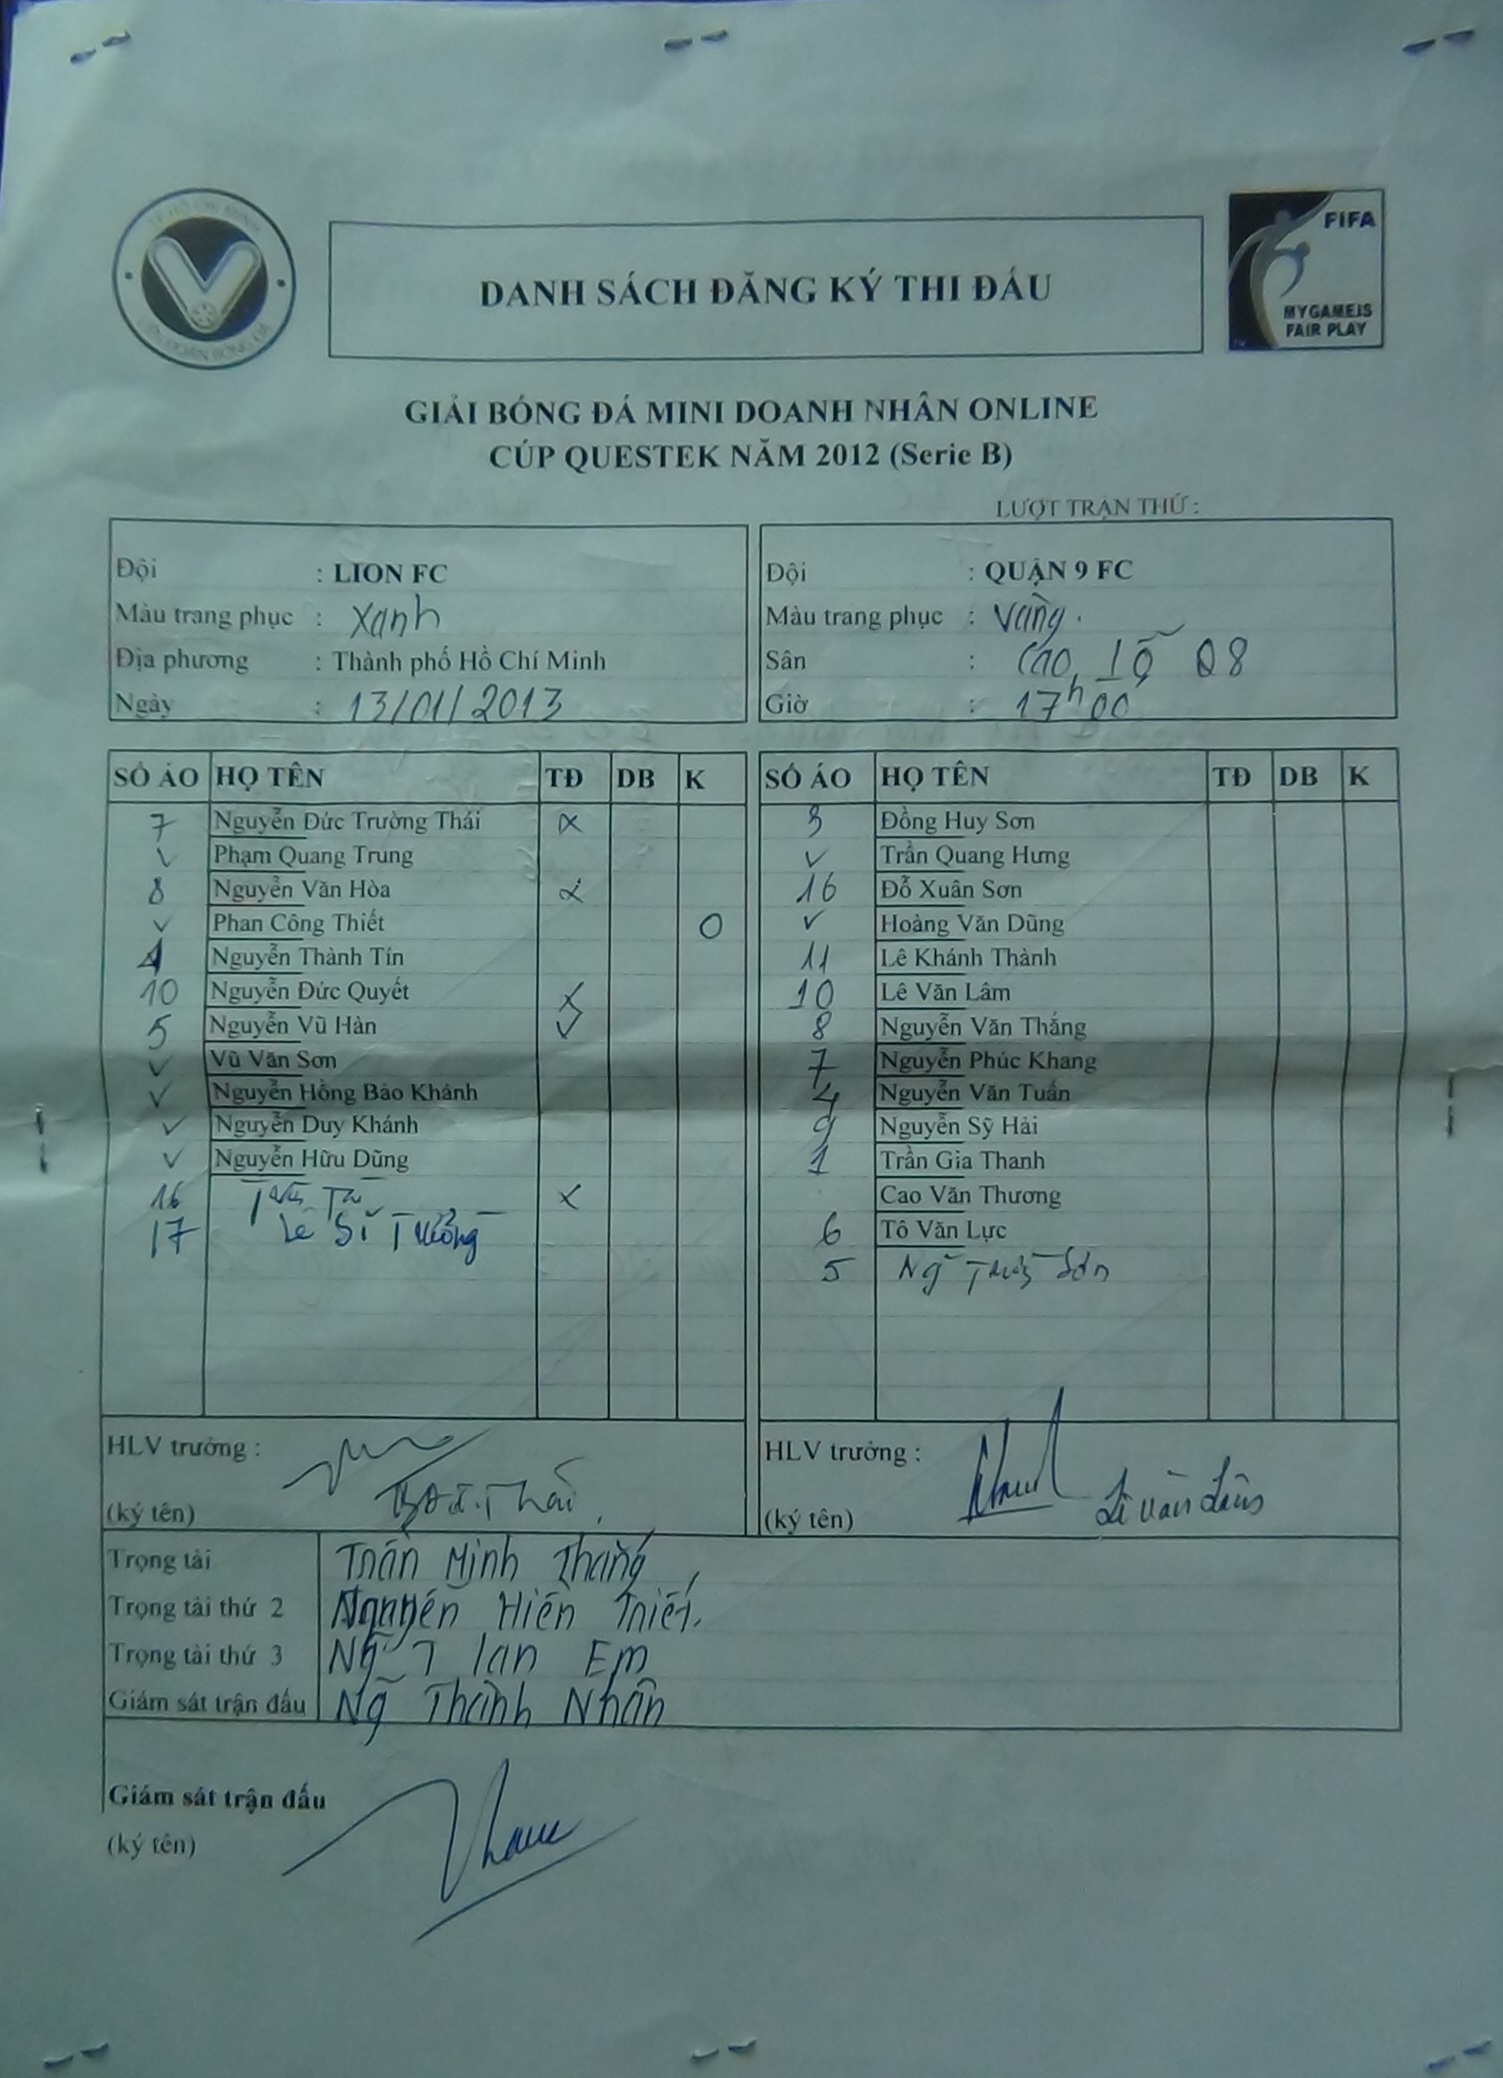 DANH SÁCH ĐĂNG KÝ THI ĐẤU
FIFA
MY GAME IS
FAIR PLAY
GIẢI BÓNG ĐÁ MINI DOANH NHÂN ONLINE
CÚP QUESTEK NĂM 2012 (Serie B)
LƯỢT TRẬN THỨ :
Đội : LION FC
Màu trang phục : Xanh
Địa phương : Thành phố Hồ Chí Minh
Ngày : 13/01/2013
Đội : QUẬN 9 FC
Màu trang phục : Vàng.
Sân : Cao Lỗ Q8
Giờ : 17h00
SỐ ÁO HỌ TÊN TĐ DB K
7 Nguyễn Đức Trường Thái x
✓ Phạm Quang Trung
8 Nguyễn Văn Hòa x
✓ Phan Công Thiết O
4 Nguyễn Thành Tín
10 Nguyễn Đức Quyết x
5 Nguyễn Vũ Hàn ✓
✓ Vũ Văn Sơn
✓ Nguyễn Hồng Bảo Khánh
✓ Nguyễn Duy Khánh
✓ Nguyễn Hữu Dũng
16 x
17 Lê Sĩ Trường
SỐ ÁO HỌ TÊN TĐ DB K
3 Đồng Huy Sơn
✓ Trần Quang Hưng
16 Đỗ Xuân Sơn
✓ Hoàng Văn Dũng
11 Lê Khánh Thành
10 Lê Văn Lâm
8 Nguyễn Văn Thắng
7 Nguyễn Phúc Khang
4 Nguyễn Văn Tuấn
9 Nguyễn Sỹ Hải
1 Trần Gia Thanh
Cao Văn Thương
6 Tô Văn Lực
5 Ng Sơn
HLV trưởng :
(ký tên) Thái
HLV trưởng :
(ký tên) Lê Văn Lâm
Trọng tài Trần Minh Thắng
Trọng tài thứ 2 Nguyễn Hiền Triết.
Trọng tài thứ 3 Ng T lan Em
Giám sát trận đấu Ng Thành Nhân
Giám sát trận đấu
(ký tên)